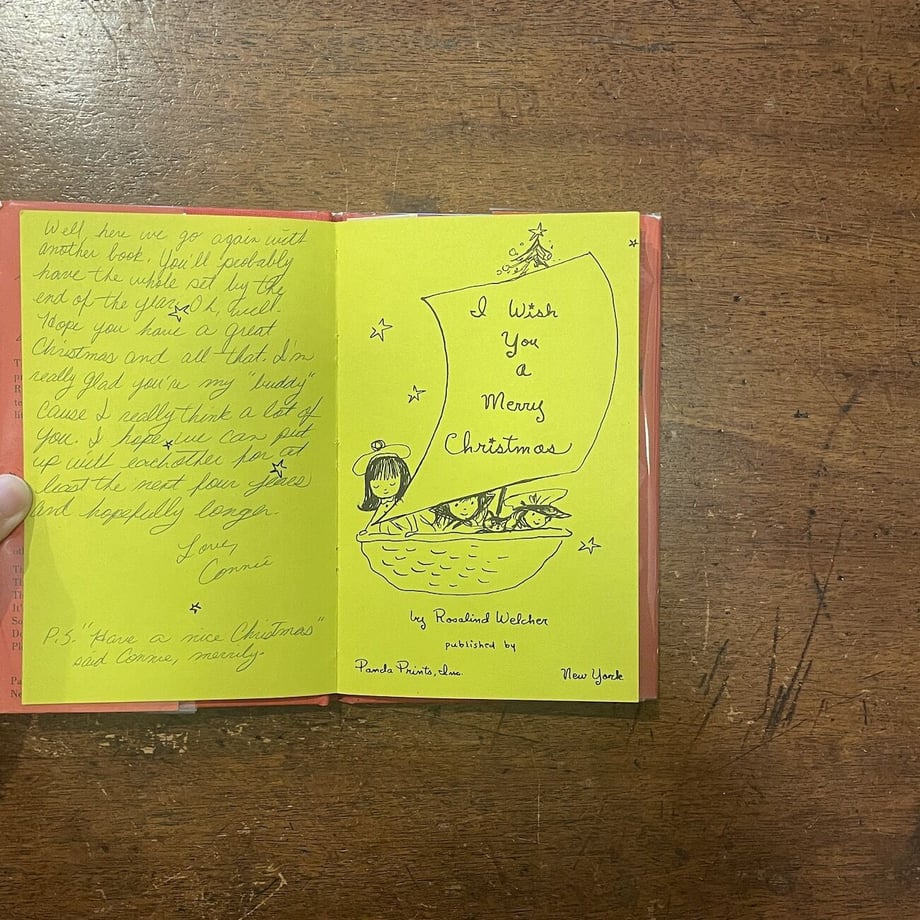 Well, here we go again with
another book. You'll probably
have the whole set by the
end of the year. Oh, well.
Hope you have a great
Christmas and all that. I'm
really glad you're my "buddy"
cause I really think a lot of
you. I hope we can put
up with eachother for at
least the next four years
and hopefully longer.
Love,
Connie
P.S. "Have a nice Christmas"
said Connie, merrily.
I Wish
You
a
Merry
Christmas
by Rosalind Welcher
published by
Panda Prints, Inc.
New York